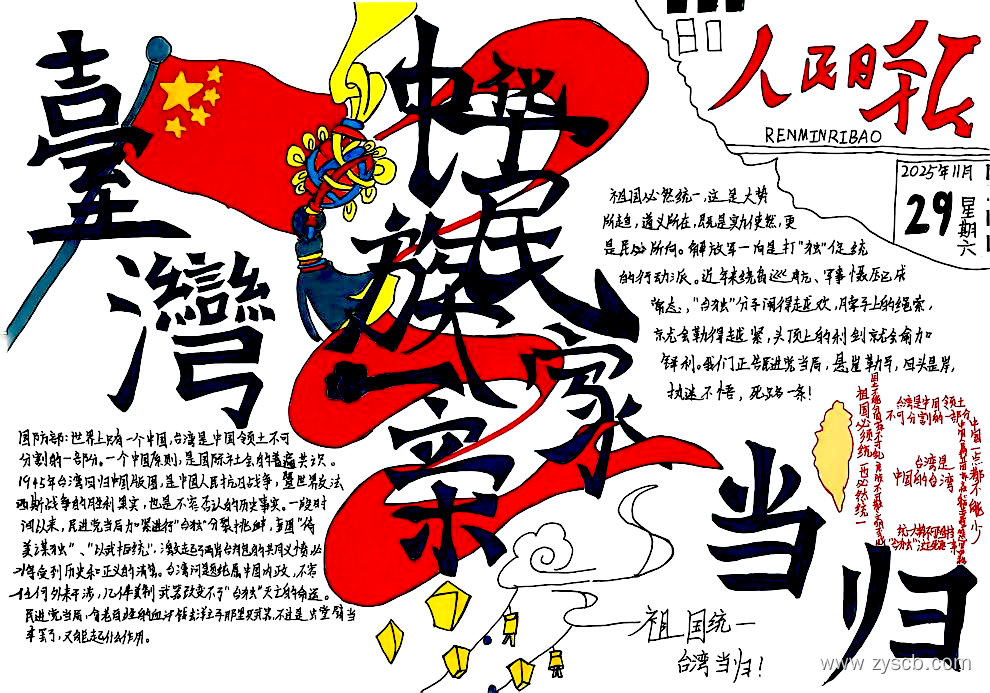 臺
灣
中华
民族
一家
亲
当
归
人民日报
RENMINRIBAO
2025年11月
29
星期六
祖国必然统一,这是大势
所趋,道义所在,既是实力使然,更
是民心所向。解放军一向是打"独"促统
的行动派。近年来绕岛巡航、军事慑压已成
常态,"台独"分子闹得越欢,脖子上的绳索,
就会勒得越紧,头顶上的利剑就会愈加
锋利。我们正告民进党当局,悬崖勒马,回头是岸,
执迷不悟,死路一条!
国防部:世界上只有一个中国,台湾是中国领土不可
分割的一部分。一个中国原则,是国际社会的普遍共识。
1945年台湾回归中国版图,是中国人民抗日战争,暨世界反法
西斯战争的胜利果实,也是不容否认的历史事实。一段时
间以来,民进党当局加紧进行"台独"分裂挑衅,妄图"倚
美谋独"、"以武拒统",激起了两岸台胞的共同义愤,必
将受到历史和正义的清算。台湾问题纯属中国内政,不容
任何外来干涉,几件美制武器改变不了"台独"灭亡的命运。
民进党当局,拿老百姓的血汗钱去
来罢了,又能起什么作用。
祖国必须统一
也必然统一
台湾是中国领土
不可分割的一部分
台湾是
中国的台湾
中国一点都不能少
祖国统一
台湾当归!
www.zyscb.com